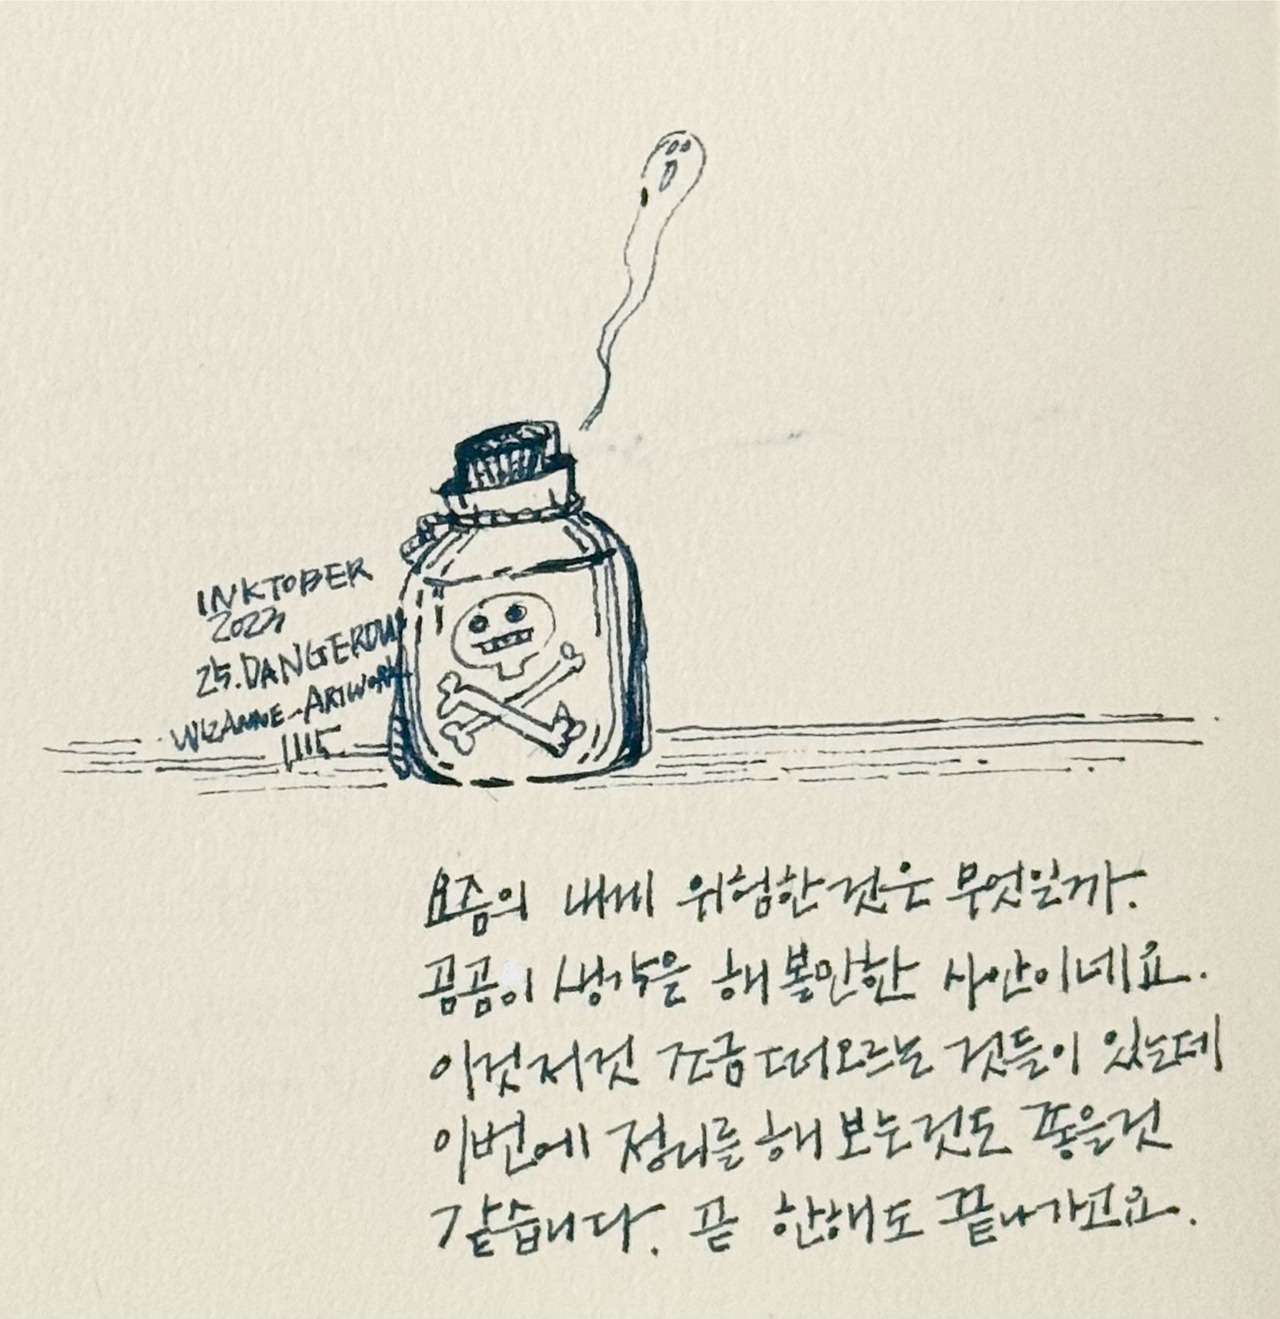 INKTOBER
2023
25. DANGEROUS
WIZANNE-ARTWORK
1115
요즘의 내게 위험한것은 무엇일까.
곰곰이 생각을 해볼만한 사안이네요.
이것저것 조금 떠오르는 것들이 있는데
이번에 정리를 해 보는것도 좋을것
같습니다. 곧 한해도 끝나가고요.